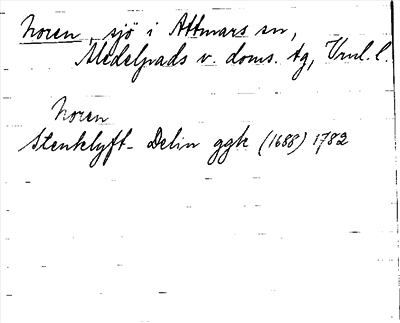 Noren, sjö i Attmars sn,
Medelpads v. doms. tg, Vrnl. l.
Noren
Stenklyft- Delin ggk (1688) 1782